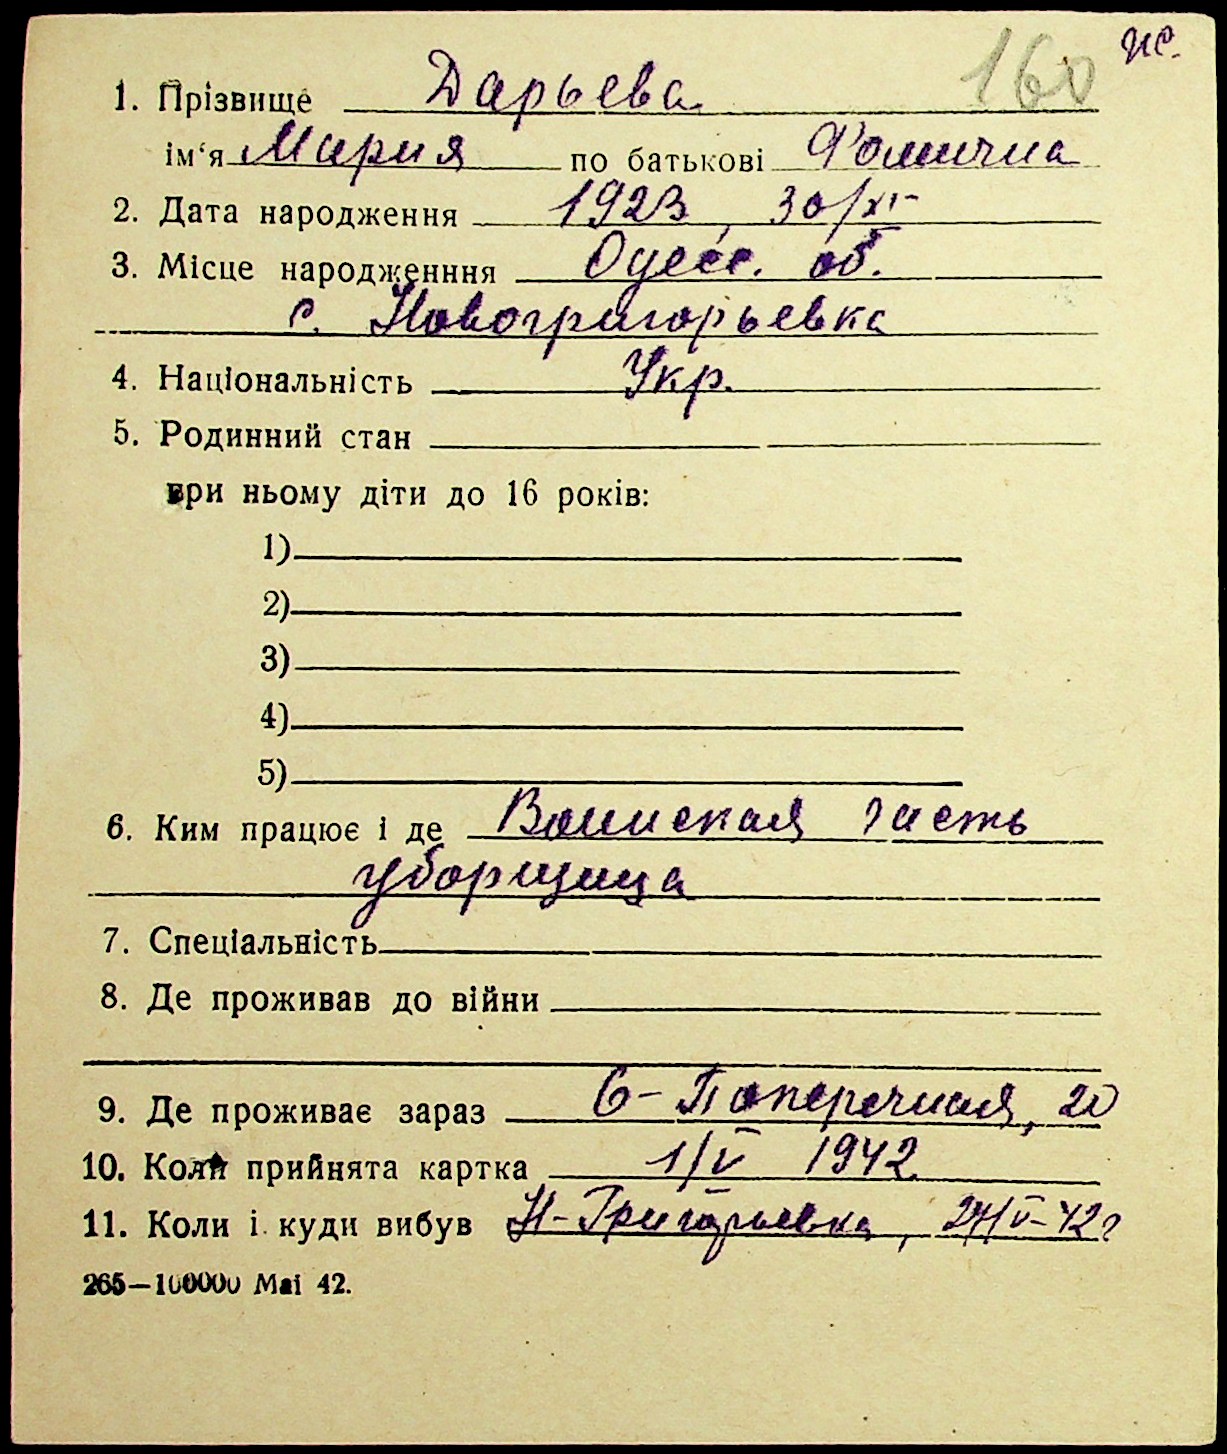 160 ж.
1. Прізвище Дарьева
ім‘я Мария по батькові Фомична
2. Дата народження 1923, 30/XI
3. Місце народженння Одесс. об.
с. Новогригорьевка
4. Національність Укр.
5. Родинний стан
при ньому діти до 16 років:
1)
2)
3)
4)
5)
6. Ким працює і де Воинская часть
уборщица
7. Спеціальність
8. Де проживав до війни
9. Де проживає зараз 6-Поперечная, 20
10. Коли прийнята картка 1/V 1942
11. Коли і куди вибув Н-Григорьевка, 24/V-42г
265—100000 Маі 42.